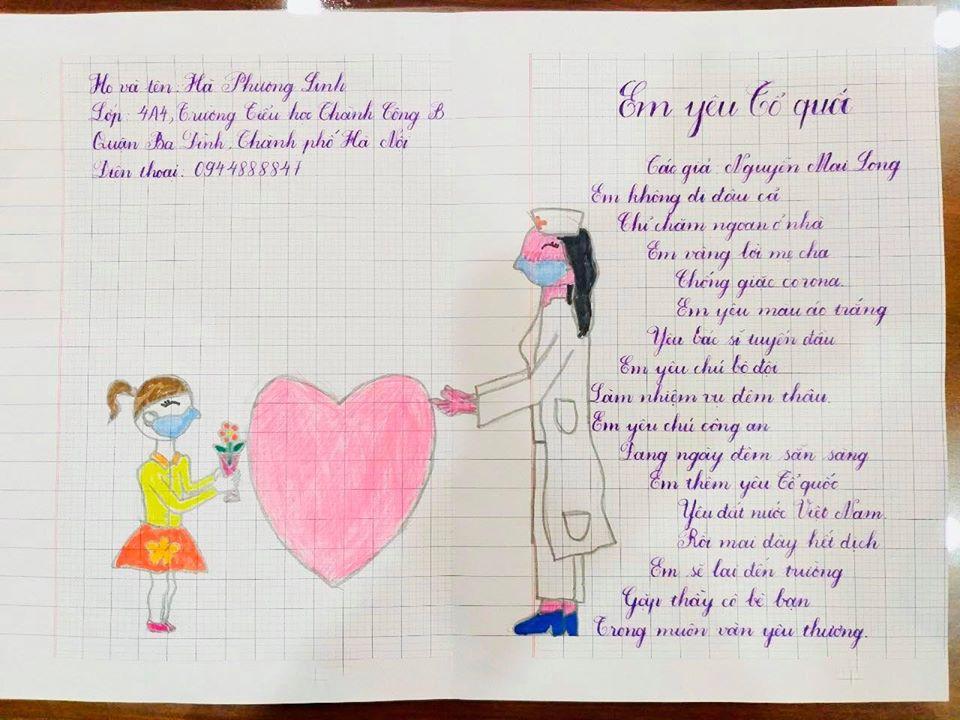 Họ và tên: Hà Phương Linh
Lớp: 4A4, Trường Tiểu học Thành Công B
Quận Ba Đình, Thành phố Hà Nội
Điện thoại: 0944888847
Em yêu Tổ quốc
Tác giả: Nguyễn Mai Long
Em không đi đâu cả
Chỉ chăm ngoan ở nhà
Em vâng lời mẹ cha
Chống giặc corona.
Em yêu màu áo trắng
Yêu bác sĩ tuyến đầu
Em yêu chú bộ đội
Làm nhiệm vụ đêm thâu.
Em yêu chú công an
Đang ngày đêm sẵn sàng
Em thêm yêu Tổ quốc
Yêu đất nước Việt Nam.
Rồi mai đây hết dịch
Em sẽ lại đến trường
Gặp thầy cô bè bạn
Trong muôn vàn yêu thương.